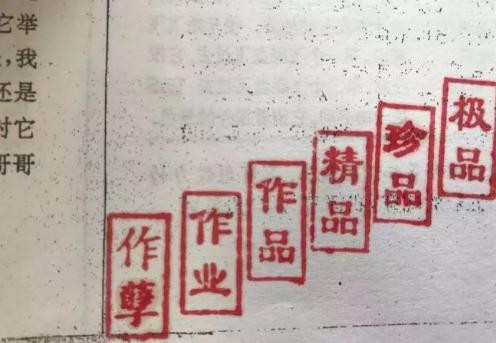 它举
,我
还是
对它
哥哥
作孽
作业
作品
精品
珍品
极品